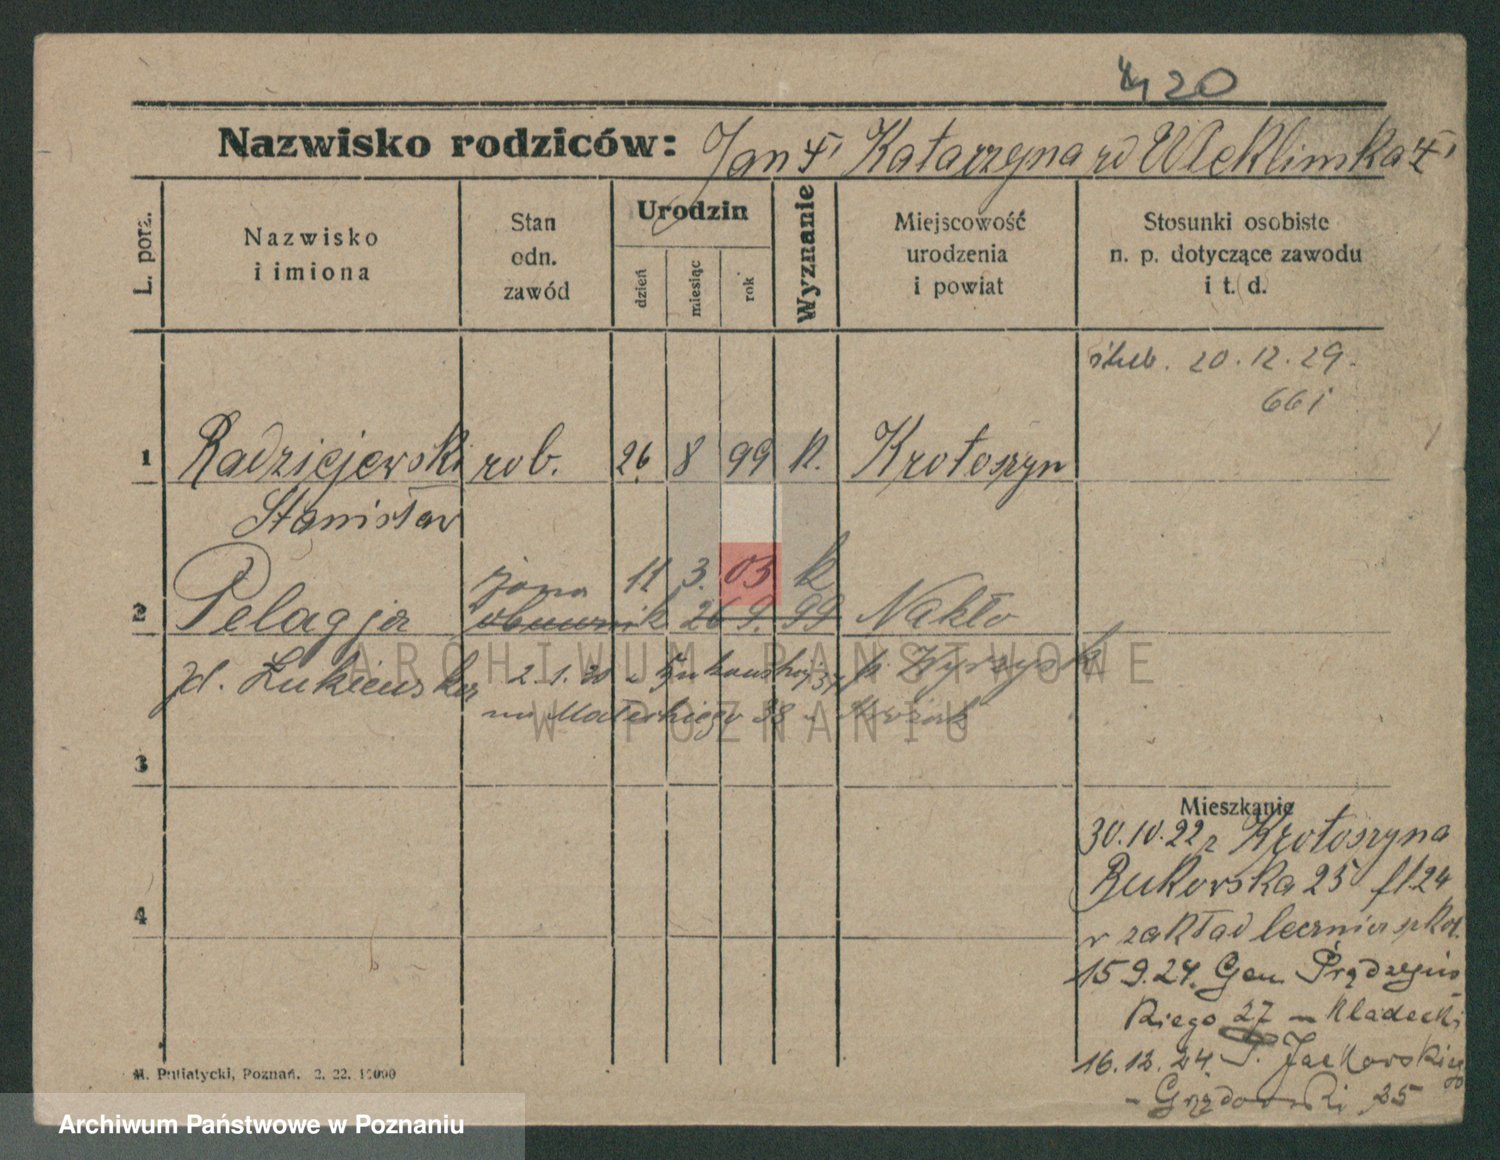 20
Nazwisko rodziców: Jan Katarzyna
L. porz.
Nazwisko
i imiona
Stan
odn.
zawód
Urodzin
dzień
miesiąc
rok
Wyznanie
Miejscowość
urodzenia
i powiat
Stosunki osobiste
n. p. dotyczące zawodu
i t. d.
ślub. 20.12.29.
661
1 Radziejewski rob. 26. 8 99 K. Krotoszyn
Stanisław
żona 11 3. 03 k
2 Pelagja obuwnik 26 9. 99 Nakło
zd. Lukiewska 2.1.30 p. Wyrzysk
na Małeckiego 38 -
3
Mieszkanie
30.10.22 z Krotoszyna
Bukowska 25
4
w zakład
15 9.24. Gen Prądzyńs
kiego 27 - Kladecki
16.12.24. Jackowskiego
- 25
M. Putiatycki, Poznań. 2. 22. 12000
ARCHIWUM PAŃSTWOWE
W POZNANIU
Archiwum Państwowe w Poznaniu